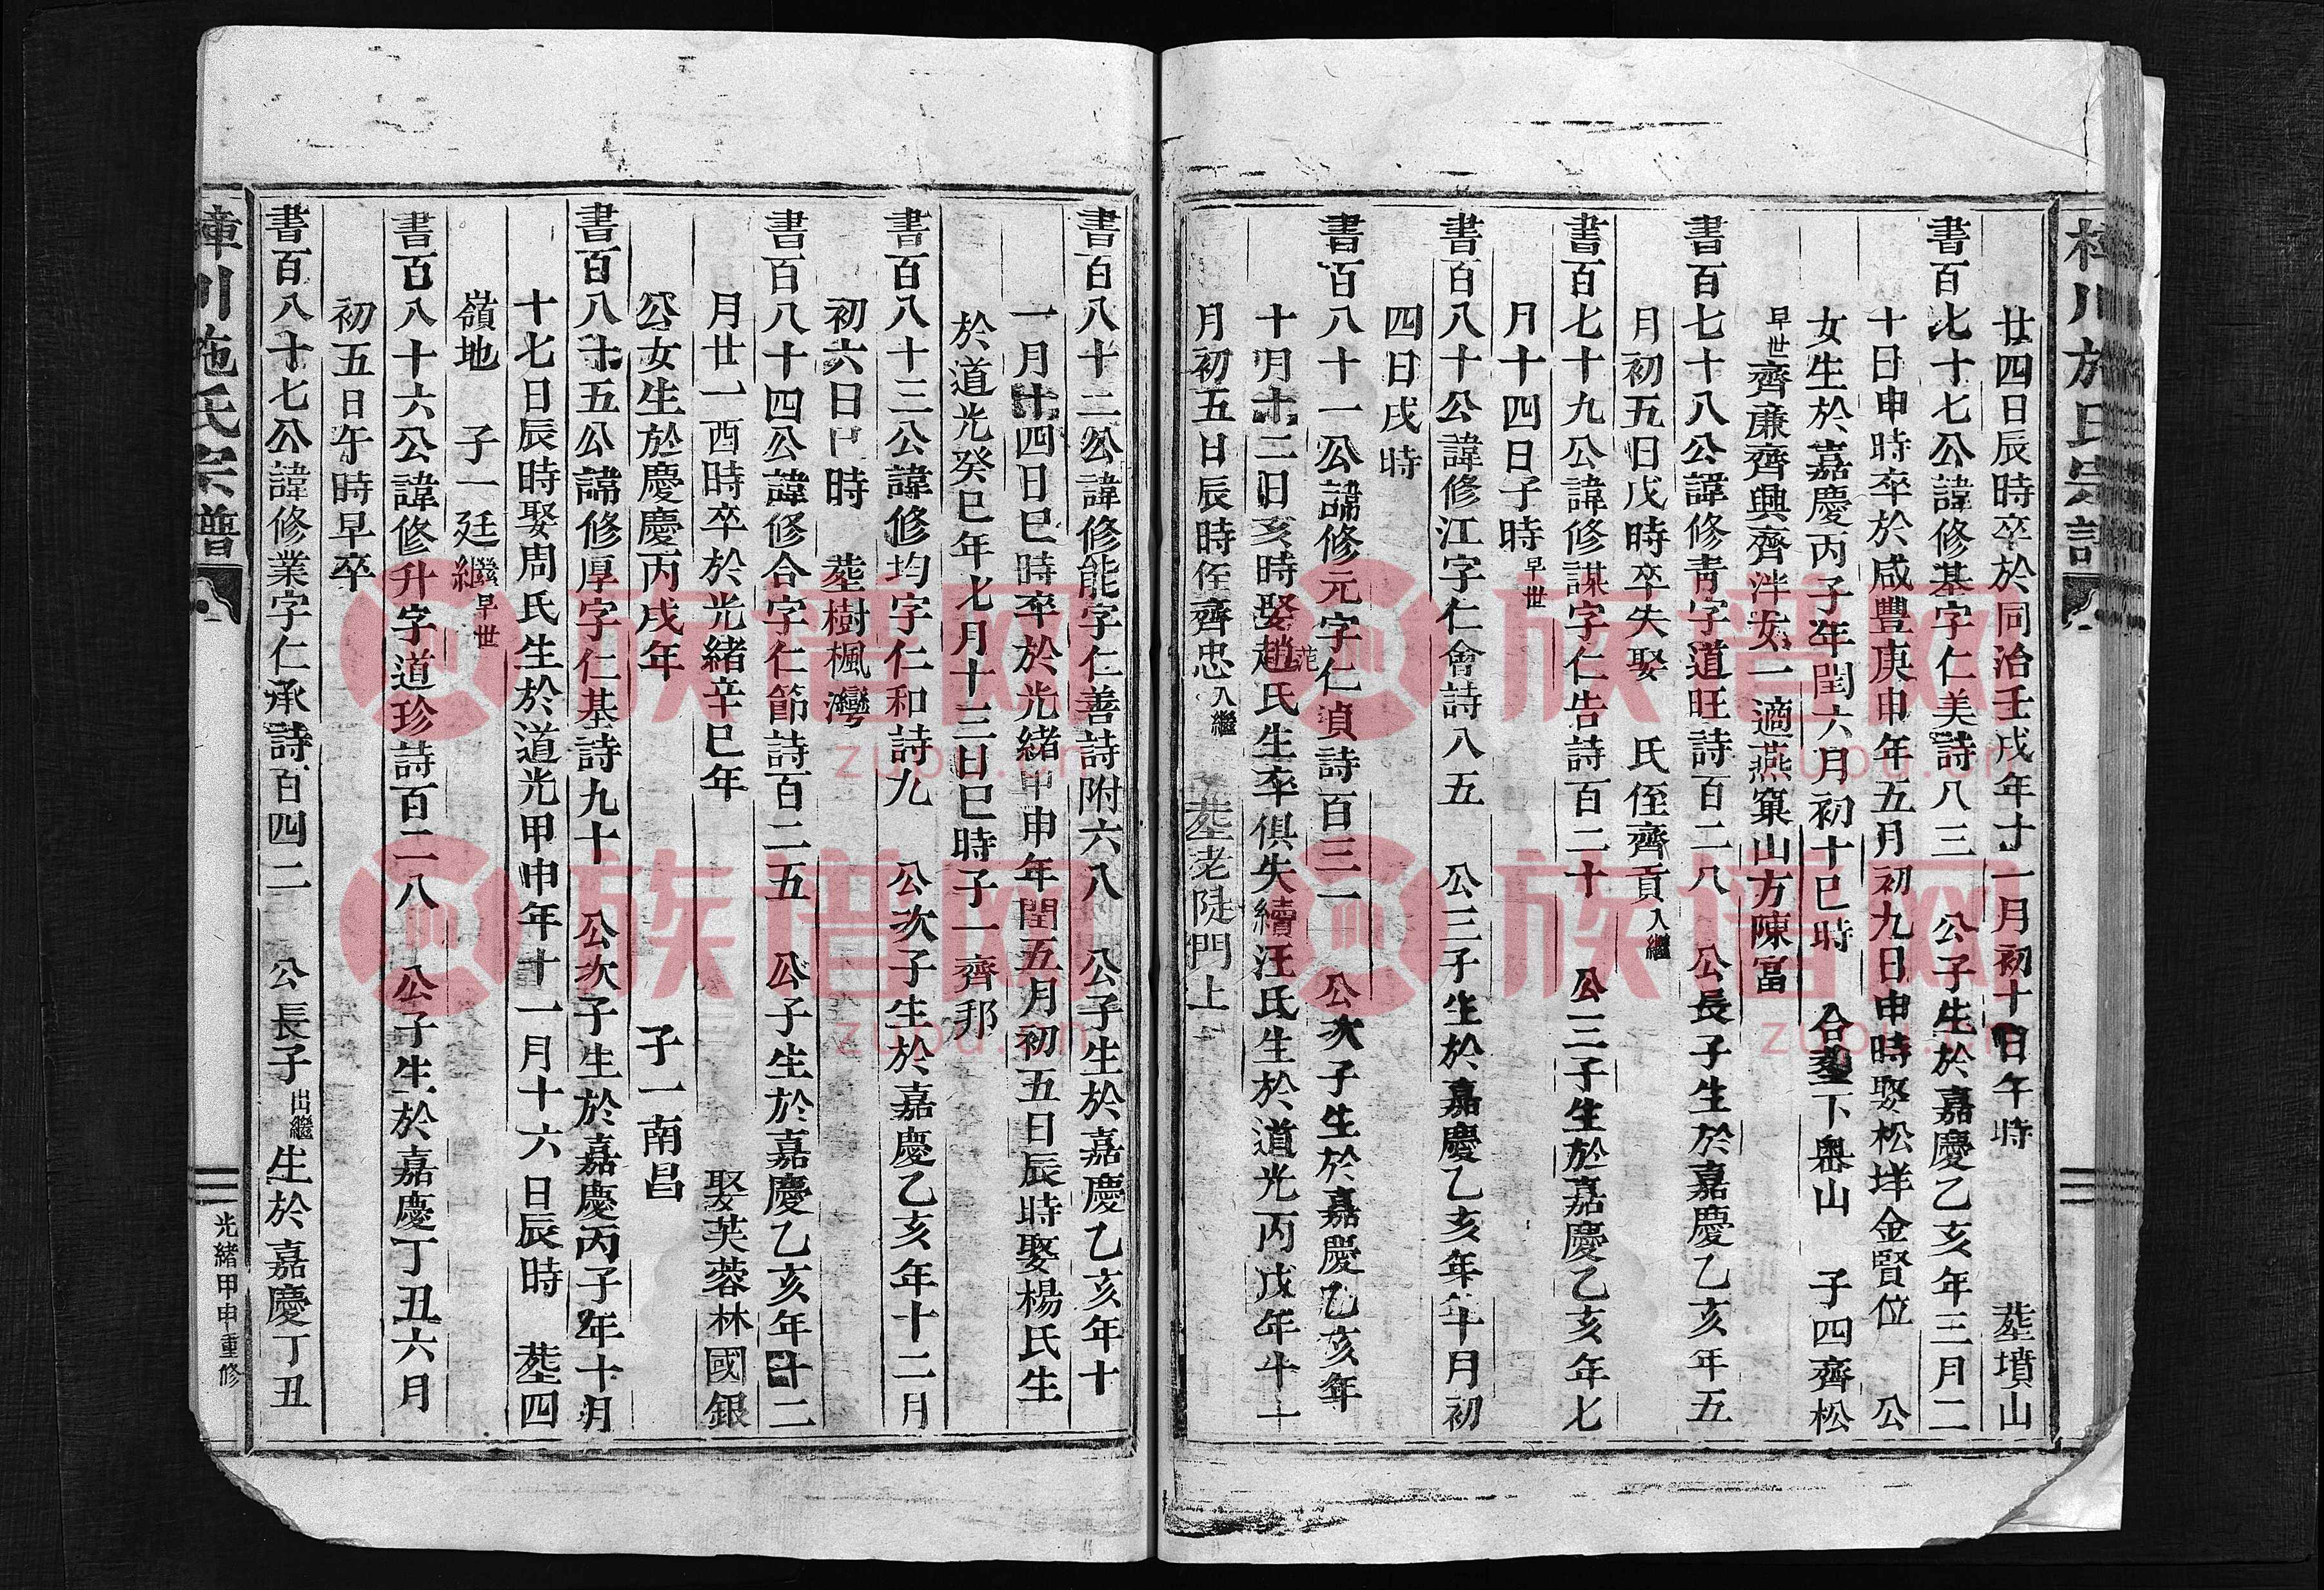 廿四日辰時卒於同治壬戌年十一月初十日午時 塟墳山
書百七十七公諱修基字仁美詩八三 公子生於嘉慶乙亥年三月二
十日申時卒於咸豐庚申年五月初九日申時娶松垟金賢位 公
女生於嘉慶丙子年閏六月初十巳時 合塟下㘭山 子四齊松
早世齊廉齊興齊泮女一適燕窠山方陳富
書百七十八公諱修青字道旺詩百二八 公長子生於嘉慶乙亥年五
月初五日戊時卒失娶 氏侄齊貢入繼
書百七十九公諱修謀字仁告詩百二十 公三子生於嘉慶乙亥年七
月十四日子時早世
書百八十公諱修江字仁會詩八五 公三子生於嘉慶乙亥年十月初
四日戌時
書百八十一公諱修元字仁貞詩百三一 公次子生於嘉慶乙亥年
十月十二日亥時娶趙氏生卒俱失續汪氏生於道光丙戌年十十
月初五日辰時侄齊忠入繼 塟老陡門上
書百八十二公諱修能字仁善詩附六八 公子生於嘉慶乙亥年十
一月十四日巳時卒於光緒甲申年閏五月初五日辰時娶楊氏生
於道光癸巳年七月十三日巳時子一齊邦
書百八十三公諱修均字仁和詩九 公次子生於嘉慶乙亥年十二月
初六日巳時 塟樹楓灣
書百八十四公諱修合字仁節詩百二五 公子生於嘉慶乙亥年十二
月廿一酉時卒於光緒辛巳年 娶芙蓉林國銀
公女生於嘉慶丙戌年 子一南昌
書百八十五公諱修厚字仁基詩九十 公次子生於嘉慶丙子年十月
十七日辰時娶周氏生於道光甲申年十一月十六日辰時 塟四
嶺地 子一廷繼早世
書百八十六公諱修升字道珍詩百二八 公子生於嘉慶丁丑六月
初五日午時早卒
書百八十七公諱修業字仁承詩百四二 公長子出繼生於嘉慶丁丑
樟川施氏宗譜
光緒甲申重修
族谱网
zupu.cn
族谱网
zupu.cn
族谱网
zupu.cn
族谱网
zupu.cn